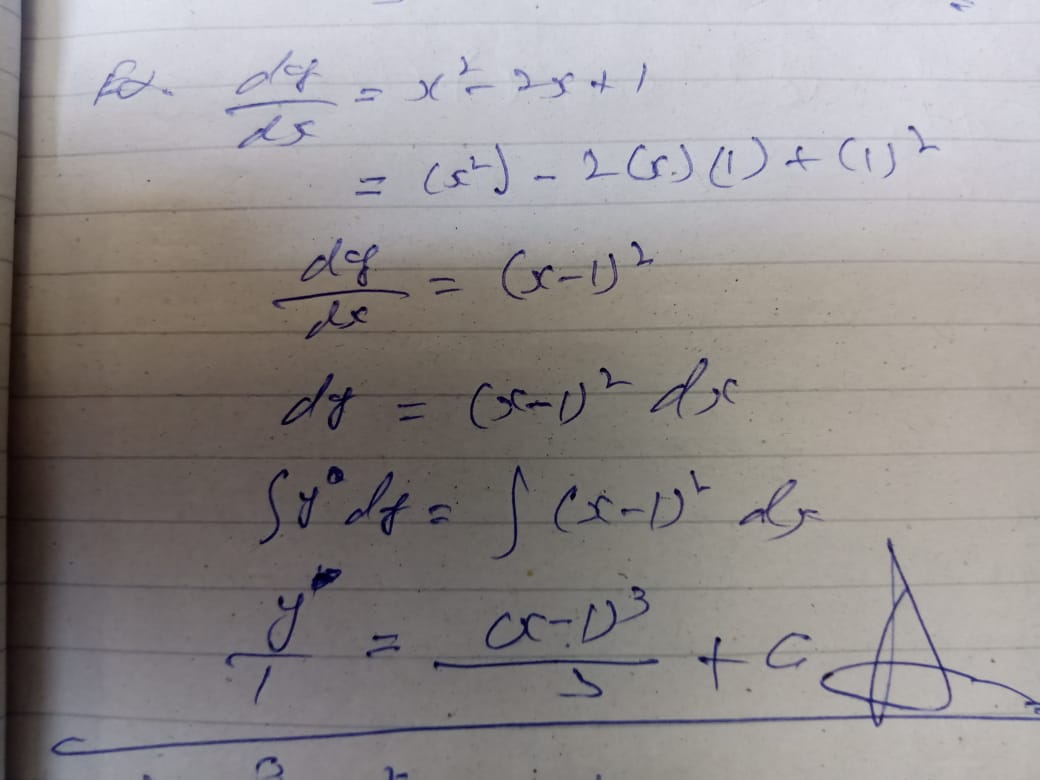 Ex. dy/dx = x² - 2x + 1
= (x²) - 2(x)(1) + (1)²
dy/dx = (x-1)²
dy = (x-1)² dx
∫y⁰ dy = ∫(x-1)² dx
y/1 = (x-1)³/3 + C